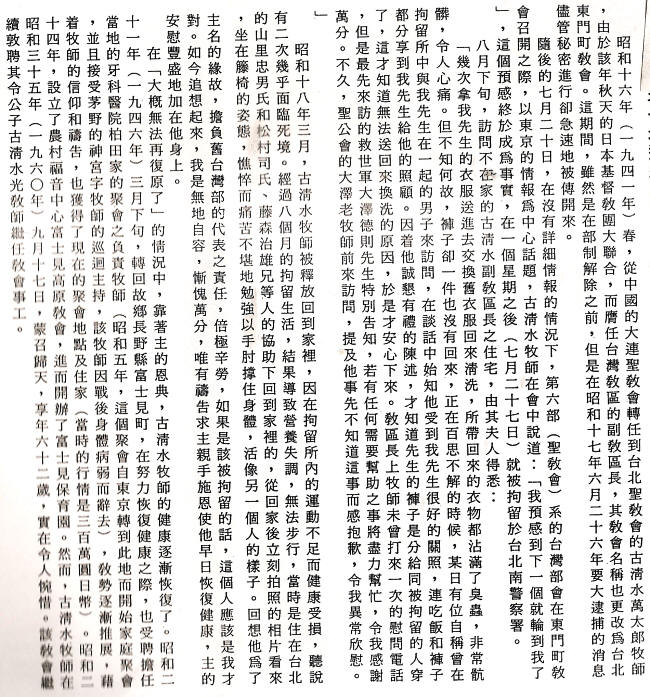 昭和十六年（一九四一年）春，從中國的大連聖教會轉任到台北聖教會的古清水萬太郎牧師
，由於該年秋天的日本基督教團大聯合，而膺任台灣教區的副教區長，其教會名稱也更改為台北
東門町教會。這期間，雖然是在部制解除之前，但是在昭和十七年六月二十六年要大逮捕的消息
儘管秘密進行卻急速地被傳開來。
隨後的七月二十日，在沒有詳細情報的情況下，第六部（聖教會）系的台灣部會在東門町教
會召開之際，以東京的情報為中心話題，古清水牧師在會中說道：「我預感到下一個就輪到我了
」，這個預感終於成爲事實，在一個星期之後（七月二十七日）就被拘留於台北南警察署。
八月下旬，訪問不在家的古清水副教區長之住宅，由其夫人得悉：
「幾次拿我先生的衣服送進去交換舊衣服回來清洗，所帶回來的衣物都沾滿了臭蟲，非常骯
髒，令人心痛。但不知何故，褲子卻一件也沒有回來，正在百思不解的時候，某日有位自稱曾在
拘留所中與我先生在一起的男子來訪問，在談話中始知他受到我先生很好的關照，連吃飯和褲子
都分享到我先生給他的照顧。因着他誠懇有禮的陳述，才知道先生的褲子是分給同被拘留的人穿
了，這才知道無法送回來換洗的原因，於是才安心下來。教區長上牧師未曾打來一次的慰問電話
，但是最先來訪的救世軍大澤德則先生特別告知，若有任何需要幫助之事將盡力幫忙，令我感謝
萬分。不久，聖公會的大澤老牧師前來訪問，提及他事先不知道這事而感抱歉，令我異常欣慰。
」
昭和十八年三月，古清水牧師被釋放回到家裡，因在拘留所內的運動不足而健康受損，聽說
有二次幾乎面臨死境。經過八個月的拘留生活，結果導致營養失調，無法步行，當時是住在台北
的山里忠男氏和松村司氏、藤森治雄兄等人的協助下回到家裡的，從回家後立刻拍照的相片看來
，坐在籐椅的姿態，憔悴而痛苦不堪地勉強以手肘撐住身體，活像另一個人的樣子。回想他爲了
主名的緣故，擔負舊台灣部的代表之責任，倍極辛勞，如果是該被拘留的話，這個人應該是我才
對。如今追想起來，我是無地自容，慚愧萬分，唯有禱告求主親手施恩使他早日恢復健康，主的
安慰豐盛地加在他身上。
在「大概無法再復原了」的情況中，靠著主的恩典，古清水牧師的健康逐漸恢復了。昭和二
十一年（一九四六年）三月下旬，轉回故鄉長野縣富士見町，在努力恢復健康之際，也受聘擔任
當地的牙科醫院柏田家的聚會之負責牧師（昭和五年，這個聚會自東京轉到此地而開始家庭聚會
，並且接受茅野的神宮字牧師的巡迴主持，該牧師因戰後身體病弱而辭去），教勢逐漸推展，藉
着牧師的信仰和禱告，也獲得了現在的聚會地點及住家（當時的行情是三百萬圓日幣）。昭和二
十四年，設立了農村福音中心富士見高原教會，進而開辦了富士見保育園。然而，古清水牧師在
昭和三十五年（一九六〇年）九月十七日，蒙召歸天，享年六十二歲，實在令人惋惜。該教會繼
續敦聘其令公子古清水光教師繼任教會事工。